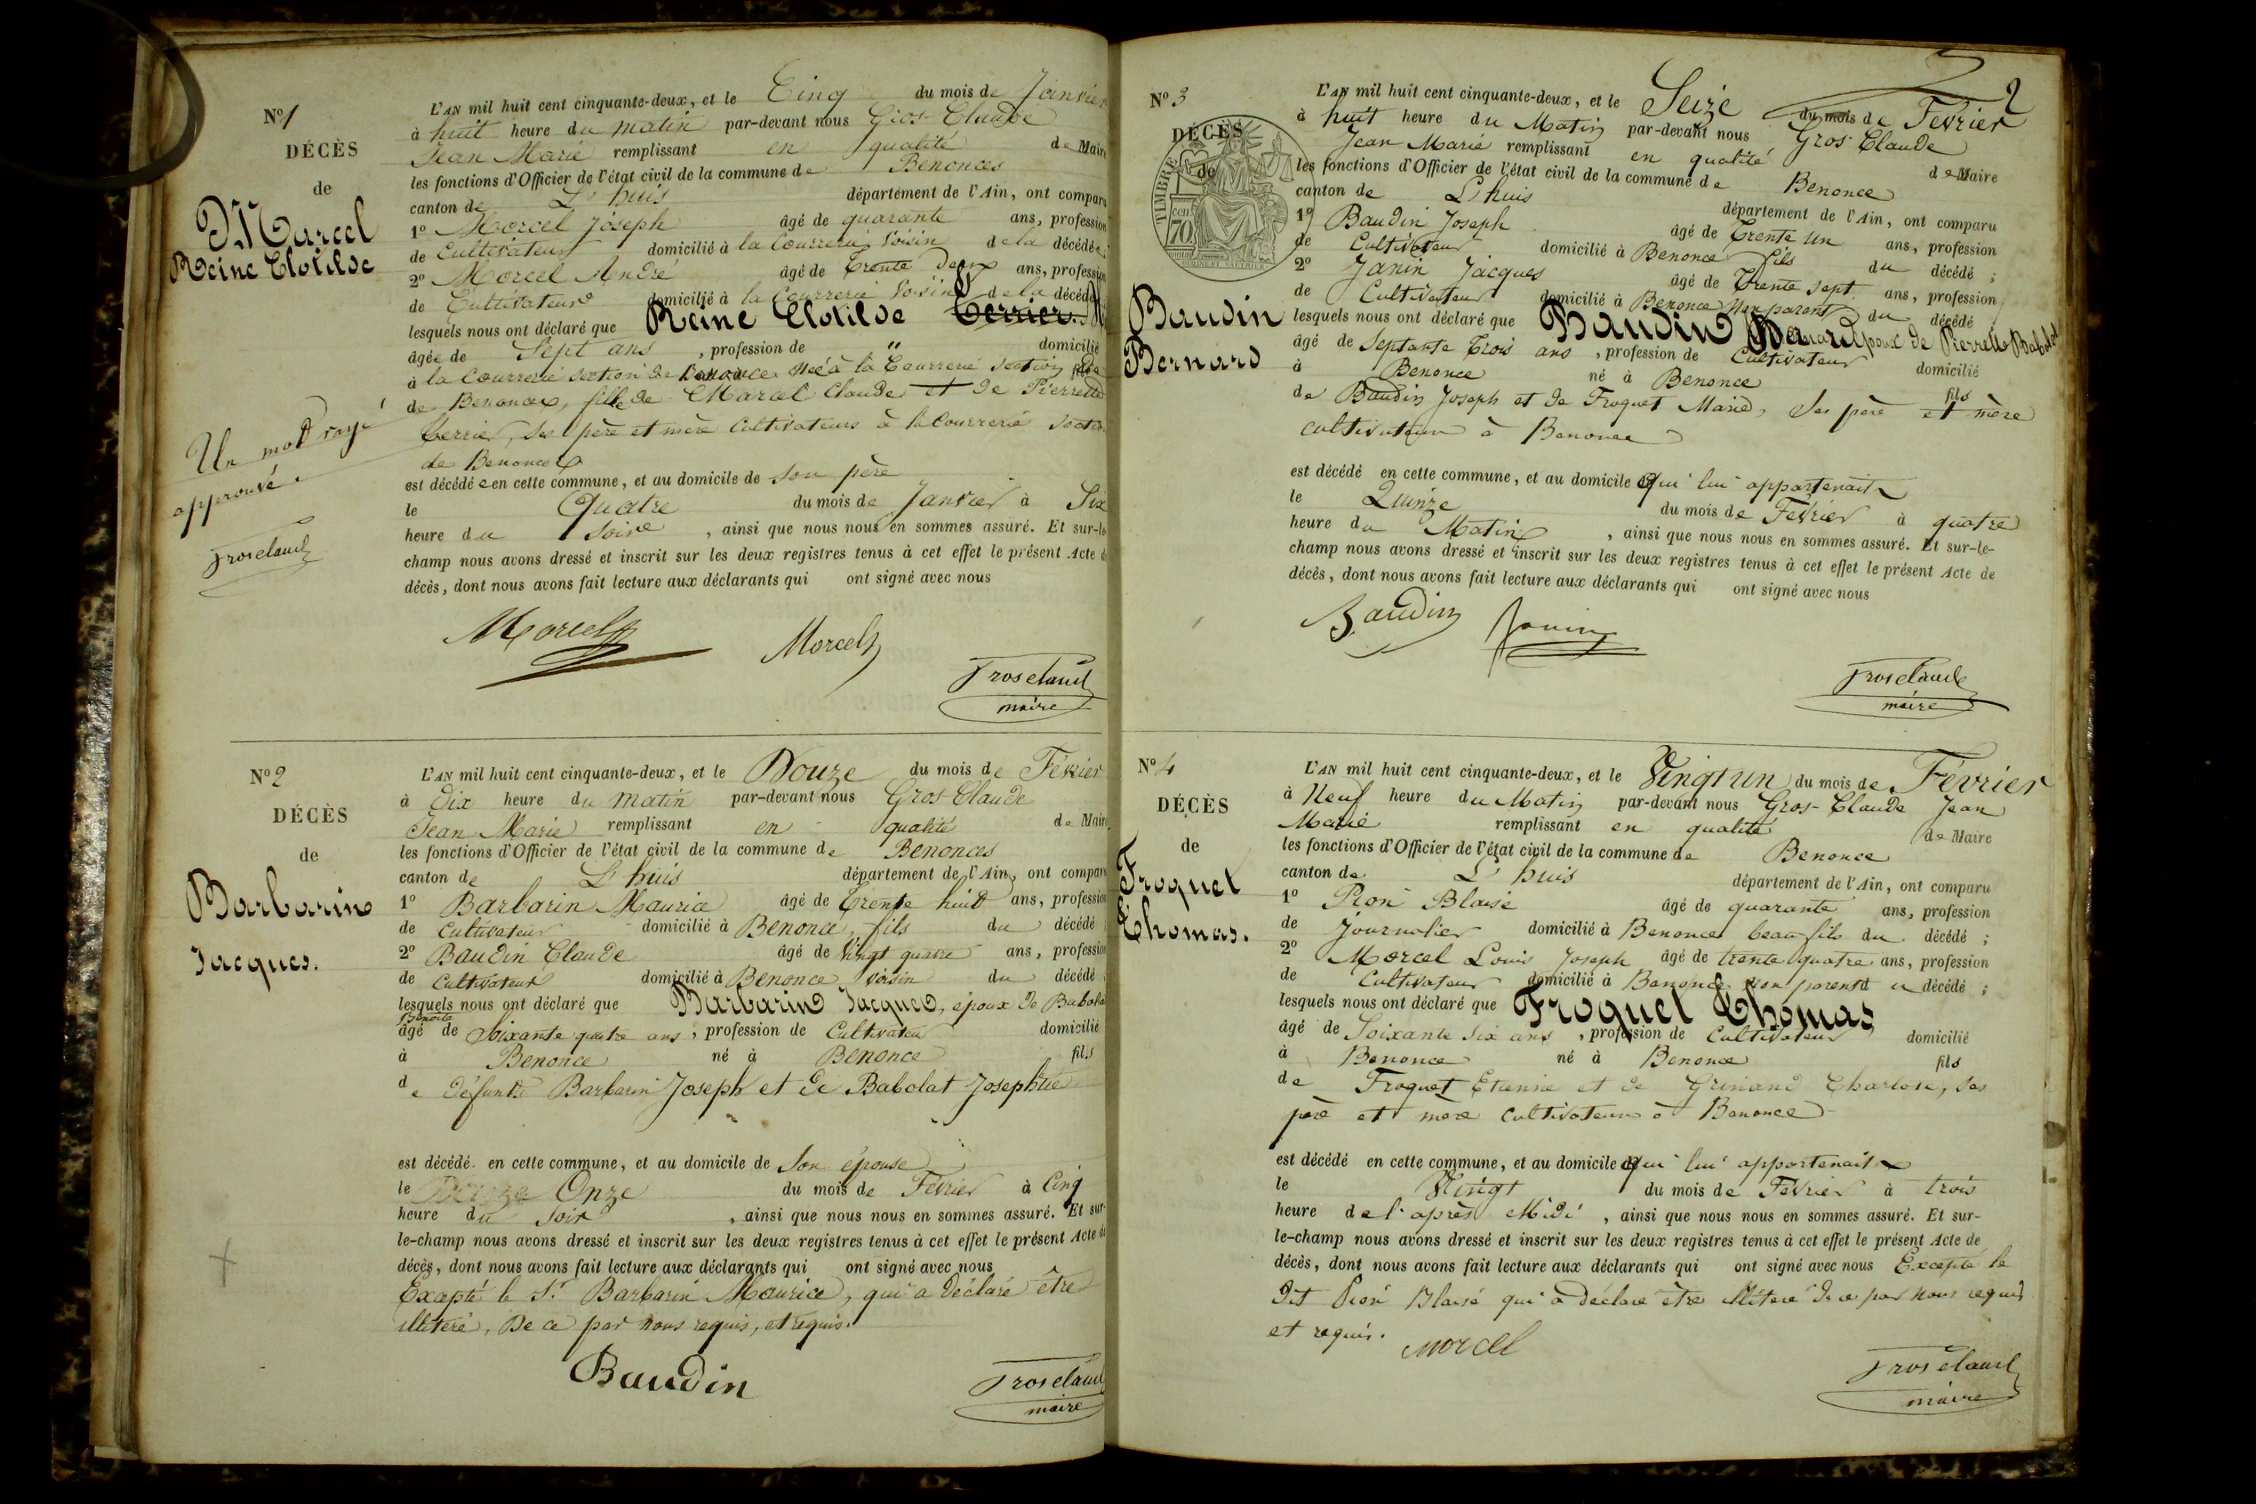 No 1
DÉCÈS
de
Marcel
Reine Clotilde
L'AN mil huit cent cinquante-deux, et le Cinq du mois de Janvier
à huit heure du matin par-devant nous Gros-Claude
Jean Marie remplissant en qualité de Maire
les fonctions d'Officier de l'état civil de la commune de Benonces
canton de L'huis département de l'Ain, ont comparu
1o Morcel Joseph âgé de quarante ans, profession
de Cultivateur domicilié à la Courrerie voisin de la décédée
2o Morcel André âgé de trente deux ans, profession
de Cultivateur domicilié à la Courrerie voisin de la décédée
lesquels nous ont déclaré que Reine Clotilde Perrier
âgée de Sept ans, profession de " domicilié
à la Courrerie section de Benonce née à la Courrerie section
de Benonces, fille de Marcel Claude et de Pierrette
Perrier, ses père et mère Cultivateurs à la Courrerie section
de Benonces
est décédée en cette commune, et au domicile de son père
le Quatre du mois de Janvier à Six
heure du soir, ainsi que nous nous en sommes assuré. Et sur-le-
champ nous avons dressé et inscrit sur les deux registres tenus à cet effet le présent Acte de
décès, dont nous avons fait lecture aux déclarants qui ont signé avec nous
Un mot rayé
approuvé.
Groselaud
Morcel Morcel
Groselaud
maire
No 2
DÉCÈS
de
Barbarin
Jacques.
L'AN mil huit cent cinquante-deux, et le Douze du mois de Février
à dix heure du matin par-devant nous Gros-Claude
Jean Marie remplissant en qualité de Maire
les fonctions d'Officier de l'état civil de la commune de Benonces
canton de L'huis département de l'Ain, ont comparu
1o Barbarin Maurice âgé de Trente huit ans, profession
de cultivateur domicilié à Benonce, fils du décédé
2o Baudin Claude âgé de Vingt quatre ans, profession
de cultivateur domicilié à Benonce voisin du décédé
lesquels nous ont déclaré que Barbarin Jacques, époux de Babolat
Benoite
âgé de Soixante quatre ans, profession de Cultivateur domicilié
à Benonce né à Benonce fils
de défunts Barbarin Joseph et de Babolat Josephtte
est décédé en cette commune, et au domicile de Son épouse
le Onze du mois de Février à Cinq
heure du Soir, ainsi que nous nous en sommes assuré. Et sur-
le-champ nous avons dressé et inscrit sur les deux registres tenus à cet effet le présent Acte de
décès, dont nous avons fait lecture aux déclarants qui ont signé avec nous
Excepté le Sr. Barbarin Maurice, qui a déclaré être
illiteré, De ce par nous requis, et requis.
Baudin
Groselaud
maire
2
No 3
DÉCÈS
de
TIMBRE
cen
70
Baudin
Bernard
L'AN mil huit cent cinquante-deux, et le Seize du mois de Février
à huit heure du Matin par-devant nous Gros-Claude
Jean Marie remplissant en qualité de Maire
les fonctions d'Officier de l'état civil de la commune de Benonce
canton de L'huis département de l'Ain, ont comparu
1o Baudin Joseph âgé de Trente un ans, profession
de Cultivateur domicilié à Benonce fils du décédé ;
2o Janin Jacques âgé de Trente sept ans, profession
de Cultivateur domicilié à Benonce Non parent du décédé
lesquels nous ont déclaré que Baudin Bernard Epoux de Pierrette Babolat
âgé de Septante Trois ans, profession de Cultivateur domicilié
à Benonce né à Benonce fils
de Baudin Joseph et de Froquet Marie, Ses père et mère
cultivateurs à Benonce
est décédé en cette commune, et au domicile qui lui appartenait
le Quinze du mois de Février à quatre
heure du Matin, ainsi que nous nous en sommes assuré. Et sur-le-
champ nous avons dressé et inscrit sur les deux registres tenus à cet effet le présent Acte de
décès, dont nous avons fait lecture aux déclarants qui ont signé avec nous
Baudin Janin
Groselaude
maire
No 4
DÉCÈS
de
Froquet
Thomas.
L'AN mil huit cent cinquante-deux, et le Vingt un du mois de Février
à Neuf heure du Matin par-devant nous Gros-Claude Jean
Marie remplissant en qualité de Maire
les fonctions d'Officier de l'état civil de la commune de Benonce
canton de L'huis département de l'Ain, ont comparu
1o Pron Blaise âgé de quarante ans, profession
de Journalier domicilié à Benonces beau fils du décédé ;
2o Morcel Louis Joseph âgé de trente quatre ans, profession
de Cultivateur domicilié à Benonce non parent du décédé ;
lesquels nous ont déclaré que Froquet Thomas
âgé de Soixante Six ans, profession de Cultivateur domicilié
à Benonce né à Benonce fils
de Froquet Etienne et de Grinand Charlote, ses
père et mère cultivateurs à Benonce
est décédé en cette commune, et au domicile qui lui appartenait
le Vingt du mois de Février à trois
heure de l'après Midi, ainsi que nous nous en sommes assuré. Et sur-
le-champ nous avons dressé et inscrit sur les deux registres tenus à cet effet le présent Acte de
décès, dont nous avons fait lecture aux déclarants qui ont signé avec nous Excepté le
Dit Pron Blaise qui a déclaré être illiteré De ce par nous requis
et requis.
morcel
Groselaud
maire